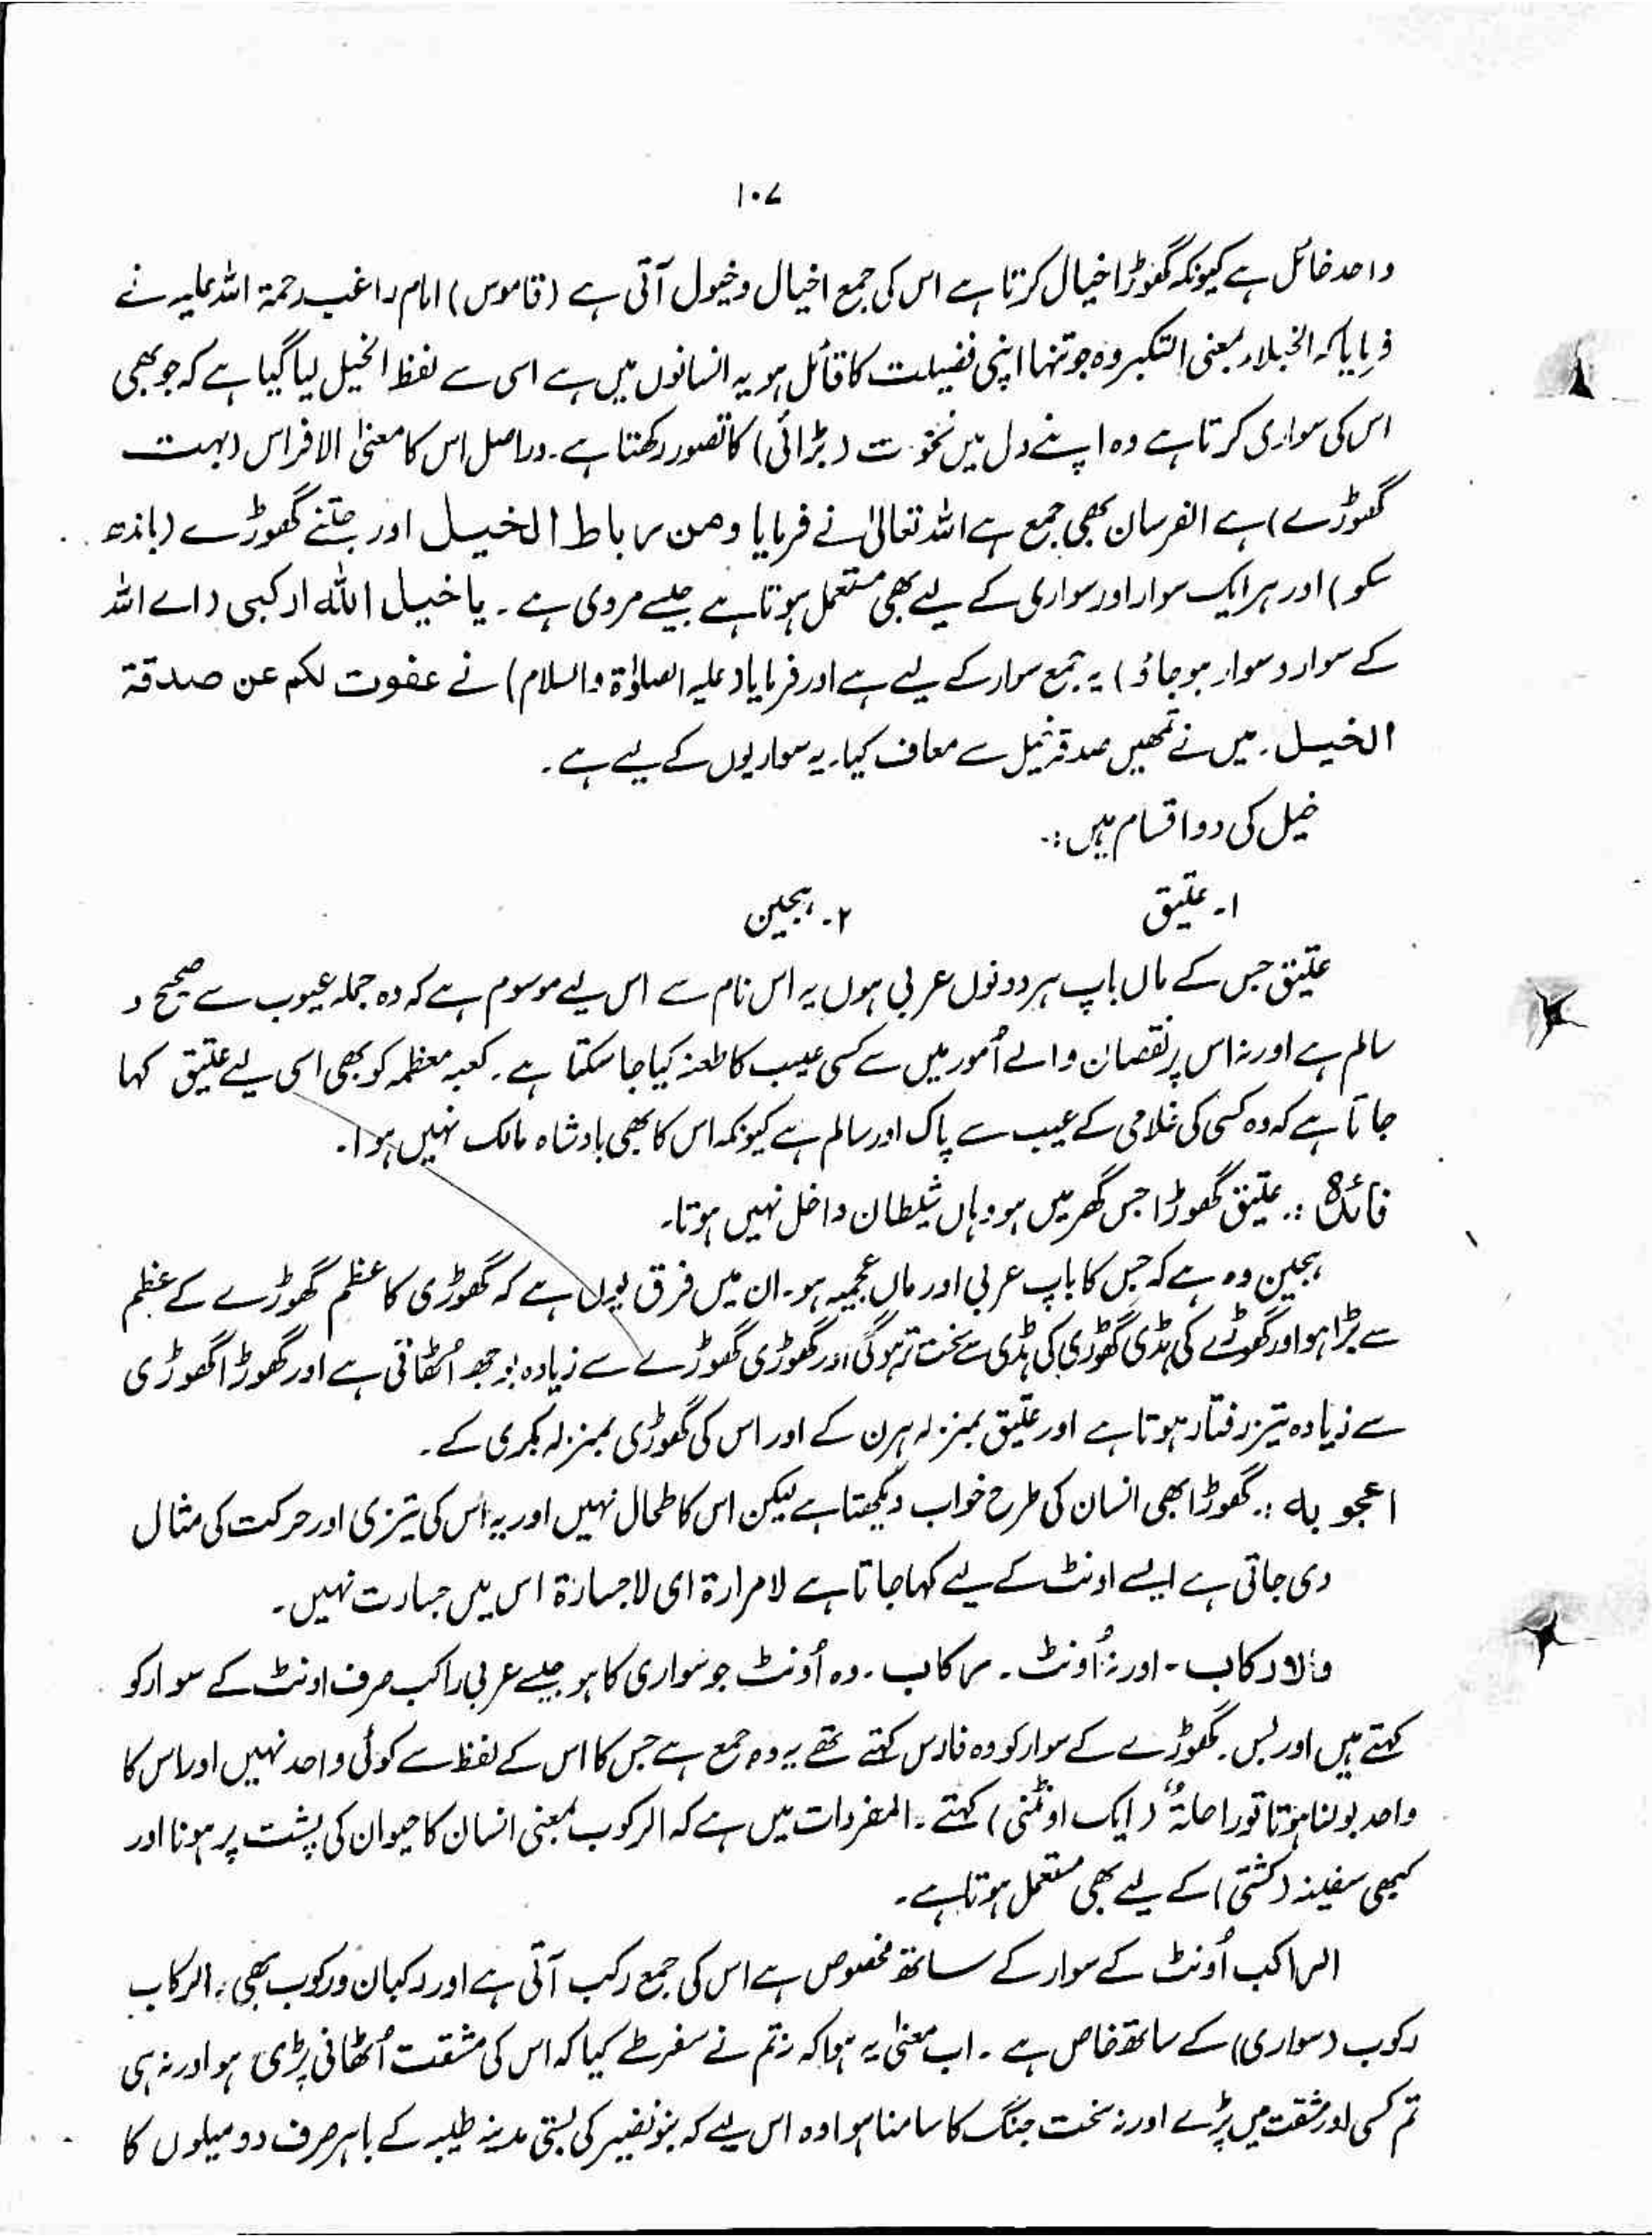 ۱۰۷
واحد خائل ہے کیونکہ گھوڑا خیال کرتا ہے اس کی جمع اخیال و خیول آتی ہے (قاموس) امام راغب رحمۃ اللہ علیہ نے
فرمایا کہ الخیلاء بمعنی التکبر وہ جو تنہا اپنی فضیلت کا قائل ہو یہ انسانوں میں ہے اسی سے لفظ الخیل لیا گیا ہے کہ جو بھی
اس کی سواری کرتا ہے وہ اپنے دل میں نخوت (بڑائی) کا تصور رکھتا ہے۔ دراصل اس کا معنیٰ الافراس (بہت
گھوڑے) ہے الفرسان بھی جمع ہے اللہ تعالیٰ نے فرمایا ومن رباط الخیل اور جتنے گھوڑے (باندھ
سکو) اور ہر ایک سوار اور سواری کے لیے بھی مستعمل ہوتا ہے جیسے مروی ہے۔ یا خیل اللہ ارکبی (اے اللہ
کے سوارو سوار ہو جاؤ) یہ جمع سوار کے لیے ہے اور فرمایا (علیہ الصلوٰۃ والسلام) نے عفوت لکم عن صدقة
الخیل۔ میں نے تمھیں صدقہ خیل سے معاف کیا۔ یہ سواریوں کے لیے ہے۔
خیل کی دو اقسام ہیں :۔
۱۔ عتیق ۲۔ ہجین
عتیق جس کے ماں باپ ہر دونوں عربی ہوں یہ اس نام سے اس لیے موسوم ہے کہ وہ جملہ عیوب سے صحیح و
سالم ہے اور نہ اس پر نقصان والے اُمور میں سے کسی عیب کا طعنہ کیا جا سکتا ہے۔ کعبہ معظمہ کو بھی اسی لیے عتیق کہا
جاتا ہے کہ وہ کسی کی غلامی کے عیب سے پاک اور سالم ہے کیونکہ اس کا بھی بادشاہ مالک نہیں ہوا۔
فائدہ :۔ عتیق گھوڑا جس گھر میں ہو وہاں شیطان داخل نہیں ہوتا۔
ہجین وہ ہے کہ جس کا باپ عربی اور ماں عجمیہ ہو۔ ان میں فرق یوں ہے کہ گھوڑی کا عظم گھوڑے کے عظم
سے بڑا ہو اور گھوڑے کی ہڈی گھوڑی کی ہڈی سے سخت تر ہوگی اور گھوڑی گھوڑے سے زیادہ بوجھ اُٹھاتی ہے اور گھوڑا گھوڑی
سے زیادہ تیز رفتار ہوتا ہے اور عتیق بمنزلہ ہرن کے اور اس کی گھوڑی بمنزلہ بکری کے۔
اعجوبہ :۔ گھوڑا بھی انسان کی طرح خواب دیکھتا ہے لیکن اس کا طحال نہیں اور یہ اس کی تیزی اور حرکت کی مثال
دی جاتی ہے ایسے اونٹ کے لیے کہا جاتا ہے لا مرارۃ ای لا جسارۃ اس میں جسارت نہیں۔
ولا رکاب۔ اور نہ اُونٹ۔ رکاب۔ وہ اُونٹ جو سواری کا ہو جیسے عربی راکب صرف اونٹ کے سوار کو
کہتے ہیں اور بس۔ گھوڑے کے سوار کو وہ فارس کہتے تھے یہ وہ جمع ہے جس کا اس کے لفظ سے کوئی واحد نہیں اور اس کا
واحد بولنا ہوتا تو راحلۃٌ (ایک اونٹنی) کہتے۔ المفردات میں ہے کہ الرکوب بمعنی انسان کا حیوان کی پشت پر ہونا اور
کبھی سفینہ (کشتی) کے لیے بھی مستعمل ہوتا ہے۔
الراکب اُونٹ کے سوار کے ساتھ مخصوص ہے اس کی جمع رکب آتی ہے اور رکبان و رکوب بھی، الرکاب
رکوب (سواری) کے ساتھ خاص ہے۔ اب معنیٰ یہ ہوا کہ نہ تم نے سفر طے کیا کہ اس کی مشقت اُٹھانی پڑی ہو اور نہ ہی
تم کسی اور مشقت میں پڑے اور نہ سخت جنگ کا سامنا ہوا وہ اس لیے کہ بنو نضیر کی بستی مدینہ طیبہ کے باہر صرف دو میلوں کا